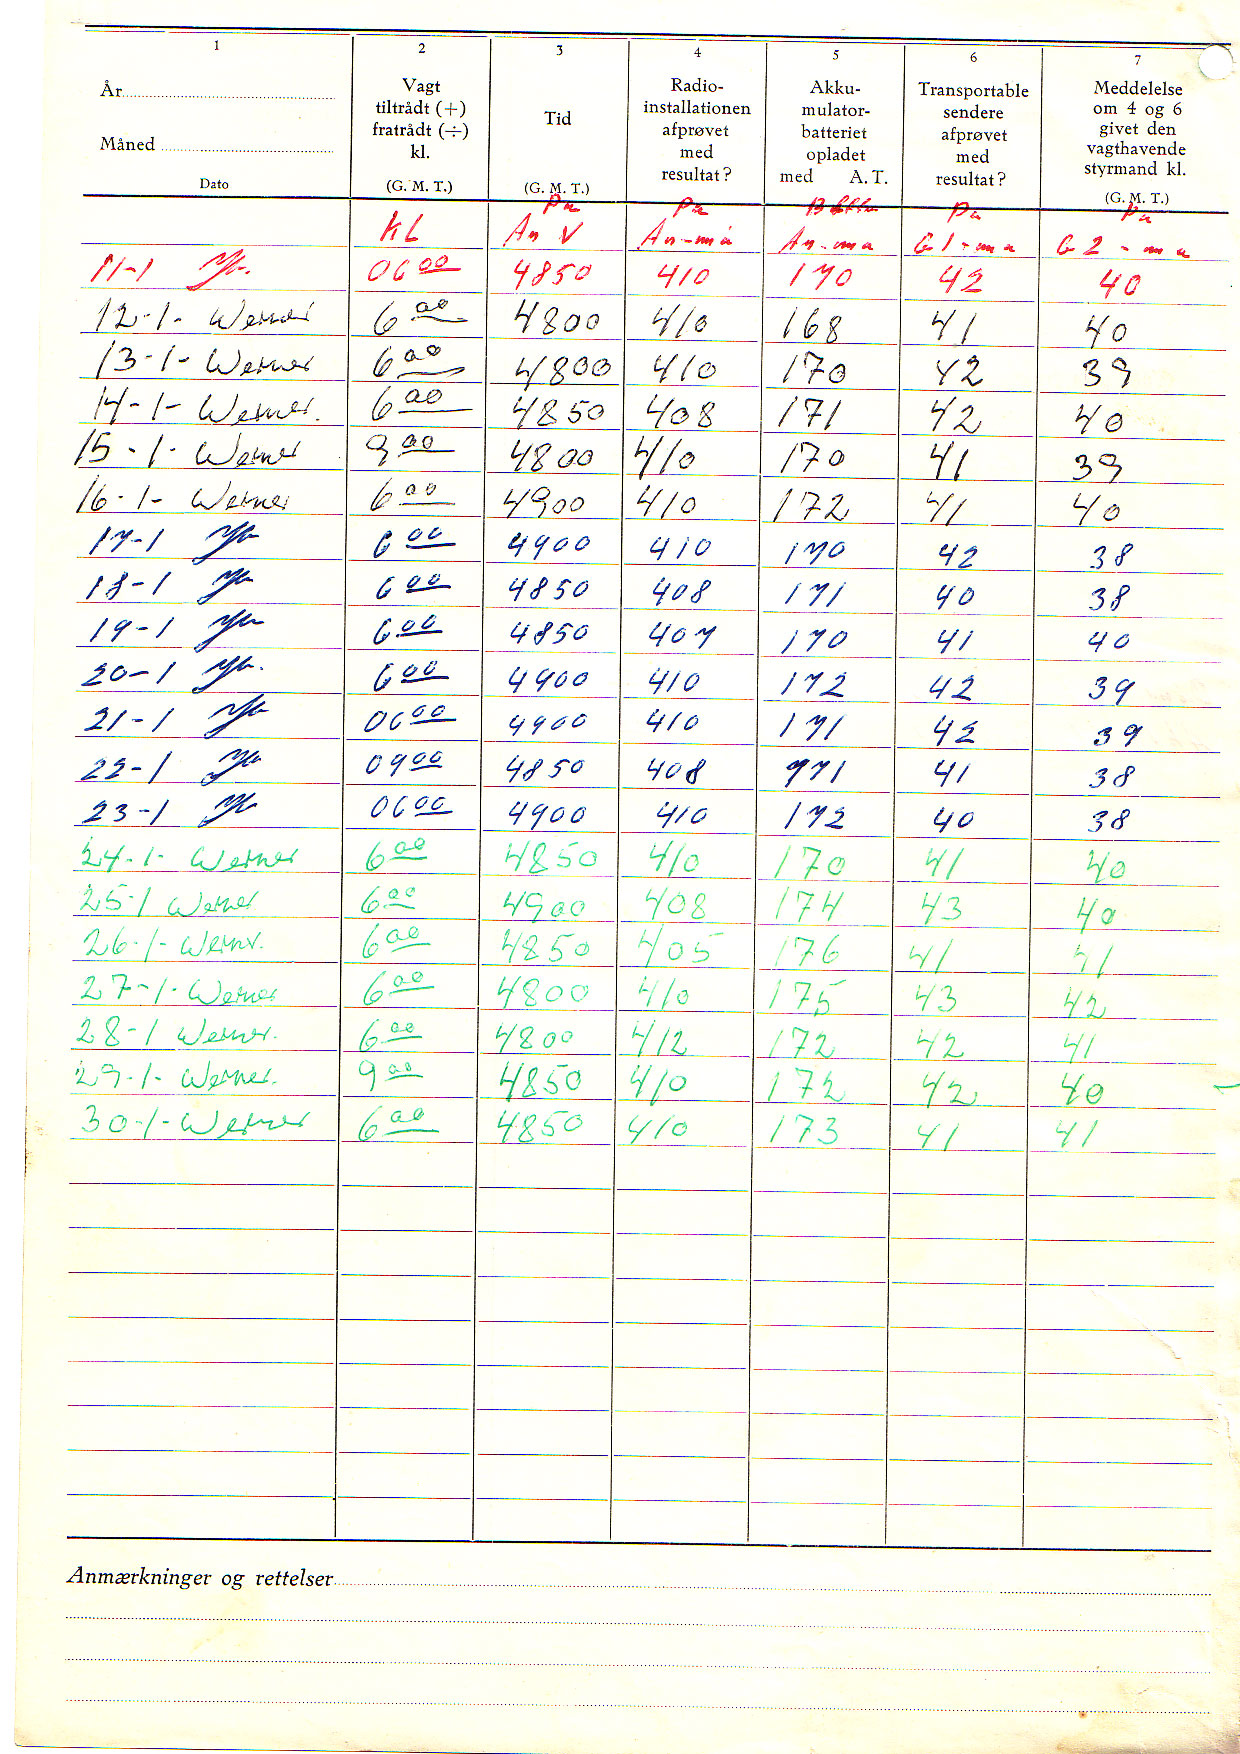 1 2 3 4 5 6 7
År Vagt tiltrådt (+) fratrådt (÷) kl. Tid Radio-installationen afprøvet med resultat? Akku-mulator-batteriet opladet med A. T. Transportable sendere afprøvet med resultat? Meddelelse om 4 og 6 givet den vagthavende styrmand kl.
Måned
Dato (G. M. T.) (G. M. T.) (G. M. T.)
Pa Pa Pa Pa
KL An V An-ma An-ma G1-ma G2-ma
11-1 06 00 4850 410 170 42 40
12-1- Werner 6 00 4800 410 168 41 40
13-1- Werner 6 00 4800 410 170 42 39
14-1- Werner. 6 00 4850 408 171 42 40
15-1- Werner 9 00 4800 410 170 41 39
16-1- Werner 6 00 4900 410 172 41 40
17-1 6 00 4900 410 170 42 38
18-1 6 00 4850 408 171 40 38
19-1 6 00 4850 407 170 41 40
20-1 6 00 4900 410 172 42 39
21-1 06 00 4900 410 171 42 39
22-1 09 00 4850 408 171 41 38
23-1 06 00 4900 410 172 40 38
24-1- Werner 6 00 4850 410 170 41 40
25-1 Werner 6 00 4900 408 174 43 40
26-1- Werner. 6 00 4850 405 176 41 41
27-1- Werner 6 00 4800 410 175 43 42
28-1 Werner. 6 00 4800 412 172 42 41
29-1- Werner. 9 00 4850 410 172 42 40
30-1- Werner 6 00 4850 410 173 41 41
Anmærkninger og rettelser